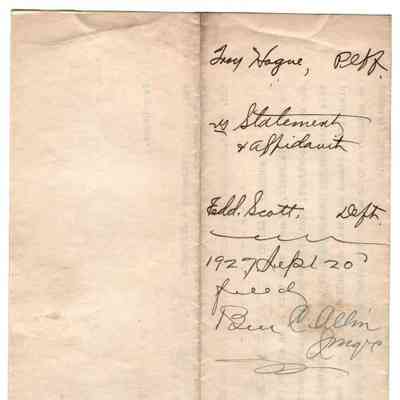 Troy Hogue, Plff.
vs Statement
& Affidavit
Edd. Scott, Deft.
1927 Sept 20
filed
Ben C. Allin